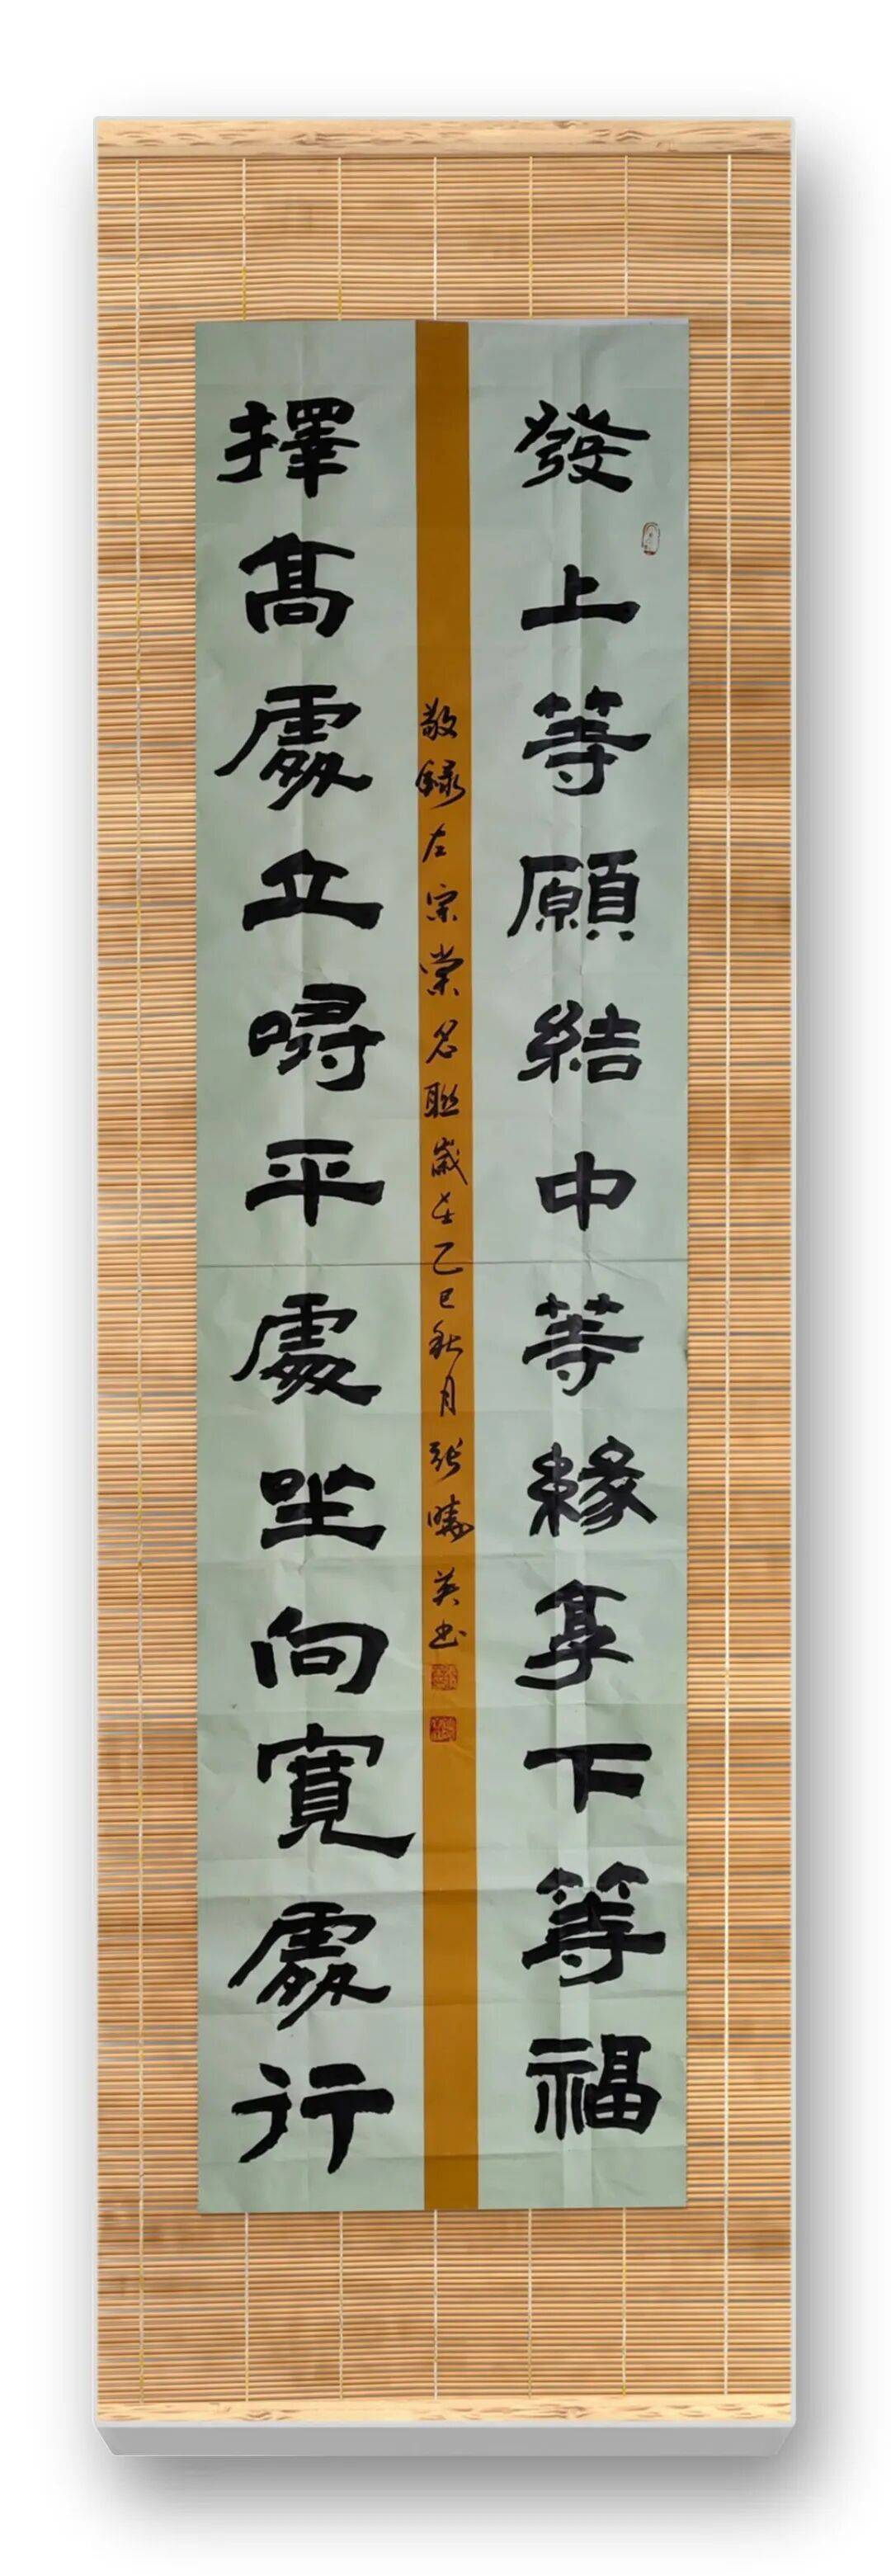 發上等願結中等緣享下等福
敬録左宗棠名聯歲在乙巳秋月張曉英书
擇髙處立嘚平處坐向寬處行